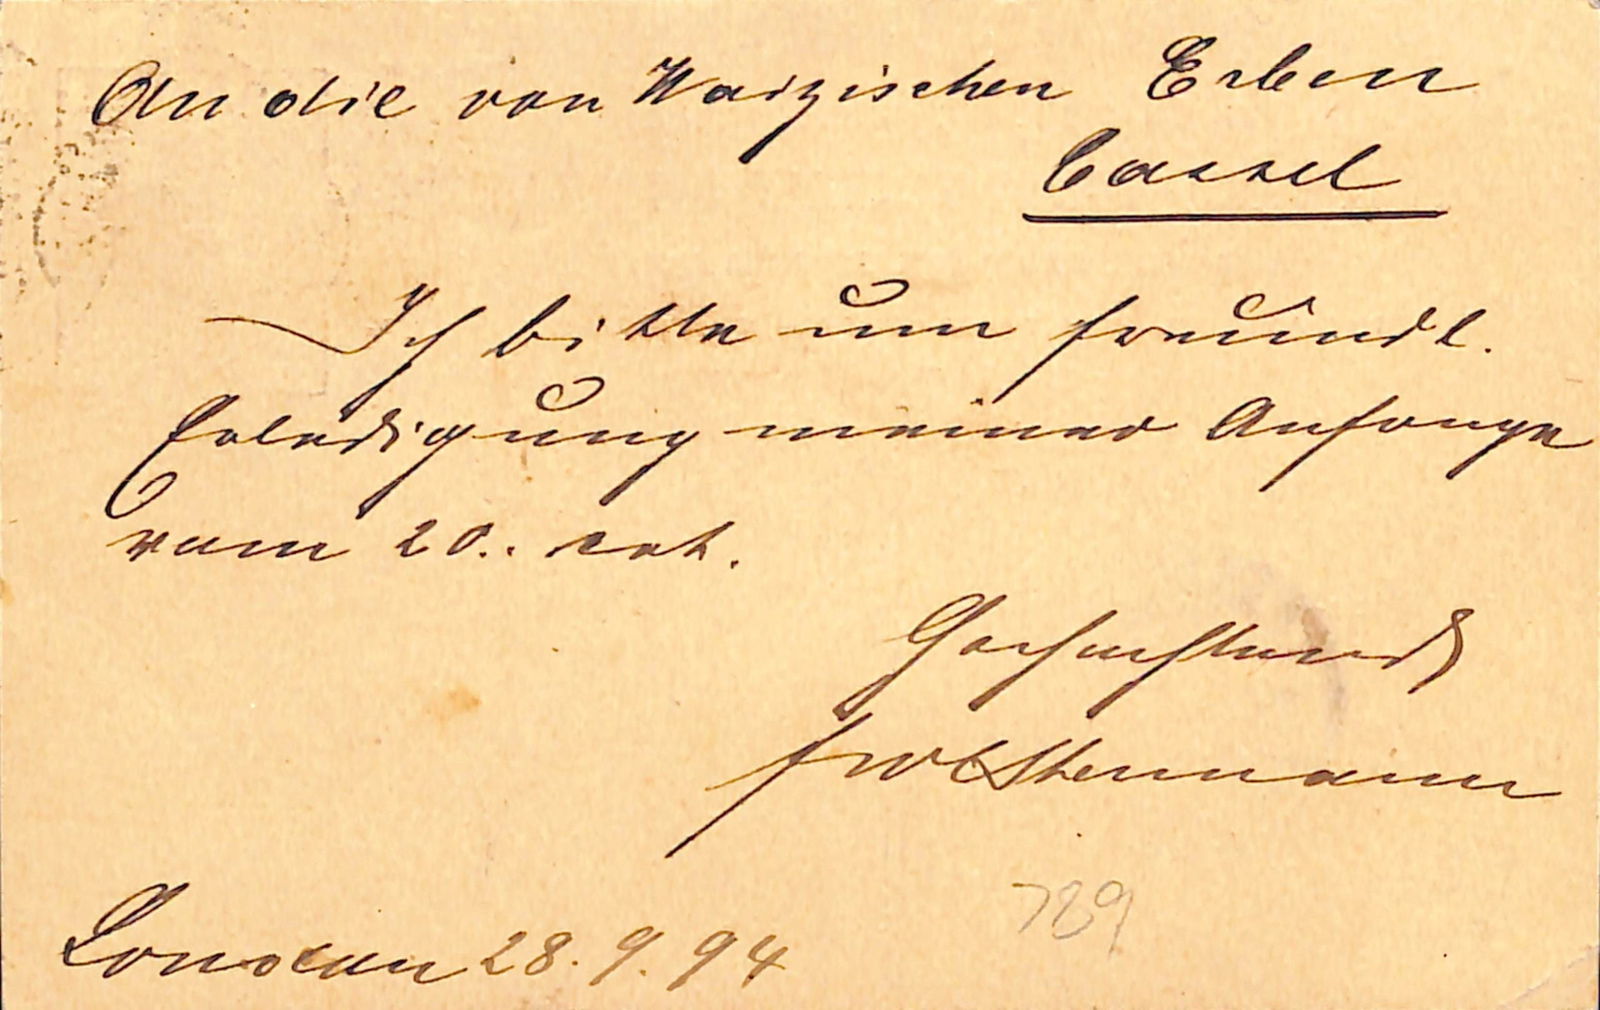 An die von Waizischen Erben
Cassel
Ich bitte um freundl.
Erledigung meiner Anfrage
vom 20.. crt.
Hochachtend
28.9.94
789